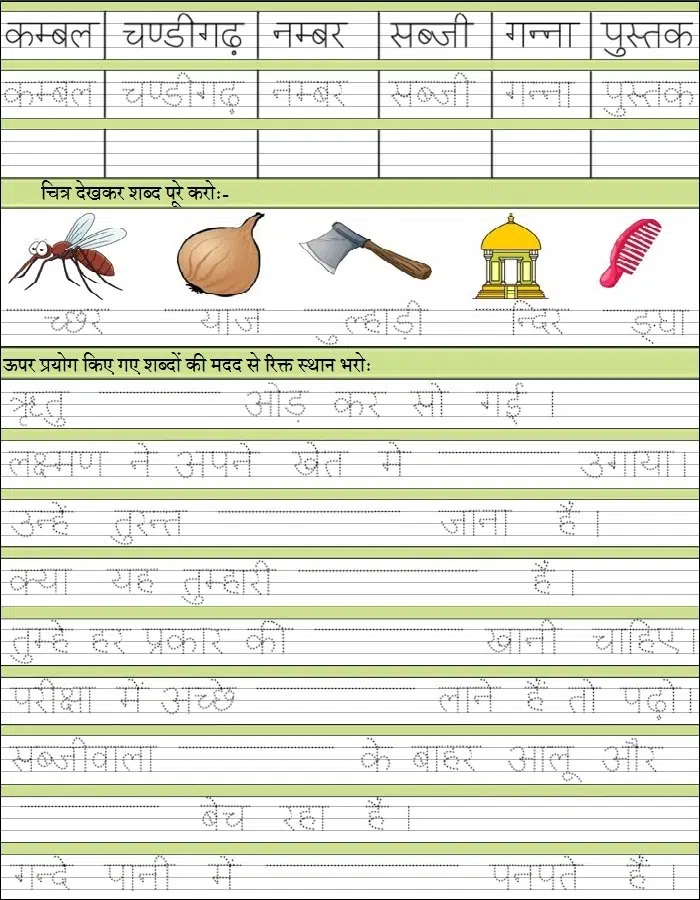 कम्बल चण्डीगढ़ नम्बर सब्जी गन्ना पुस्तक
कम्बल चण्डीगढ़ नम्बर सब्जी गन्ना पुस्तक
चित्र देखकर शब्द पूरे करोः-
च्छर याज ुल्हाड़ी न्दिर ङ्घा
ऊपर प्रयोग किए गए शब्दों की मदद से रिक्त स्थान भरोः
ऋतु ओड़ कर सो गई ।
लक्ष्मण ने अपने खेत मे उगाया।
उन्हें तुरन्त जाना हैं ।
क्या यह तुम्हारी हैं ।
तुम्हे हर प्रकार की खानी चाहिए।
परीक्षा में अच्छे लाने हैं तो पढ़ो।
सब्जीवाला के बाहर आलू और
बेच रहा हैं ।
गन्दे पानी में पनपते हैं ।